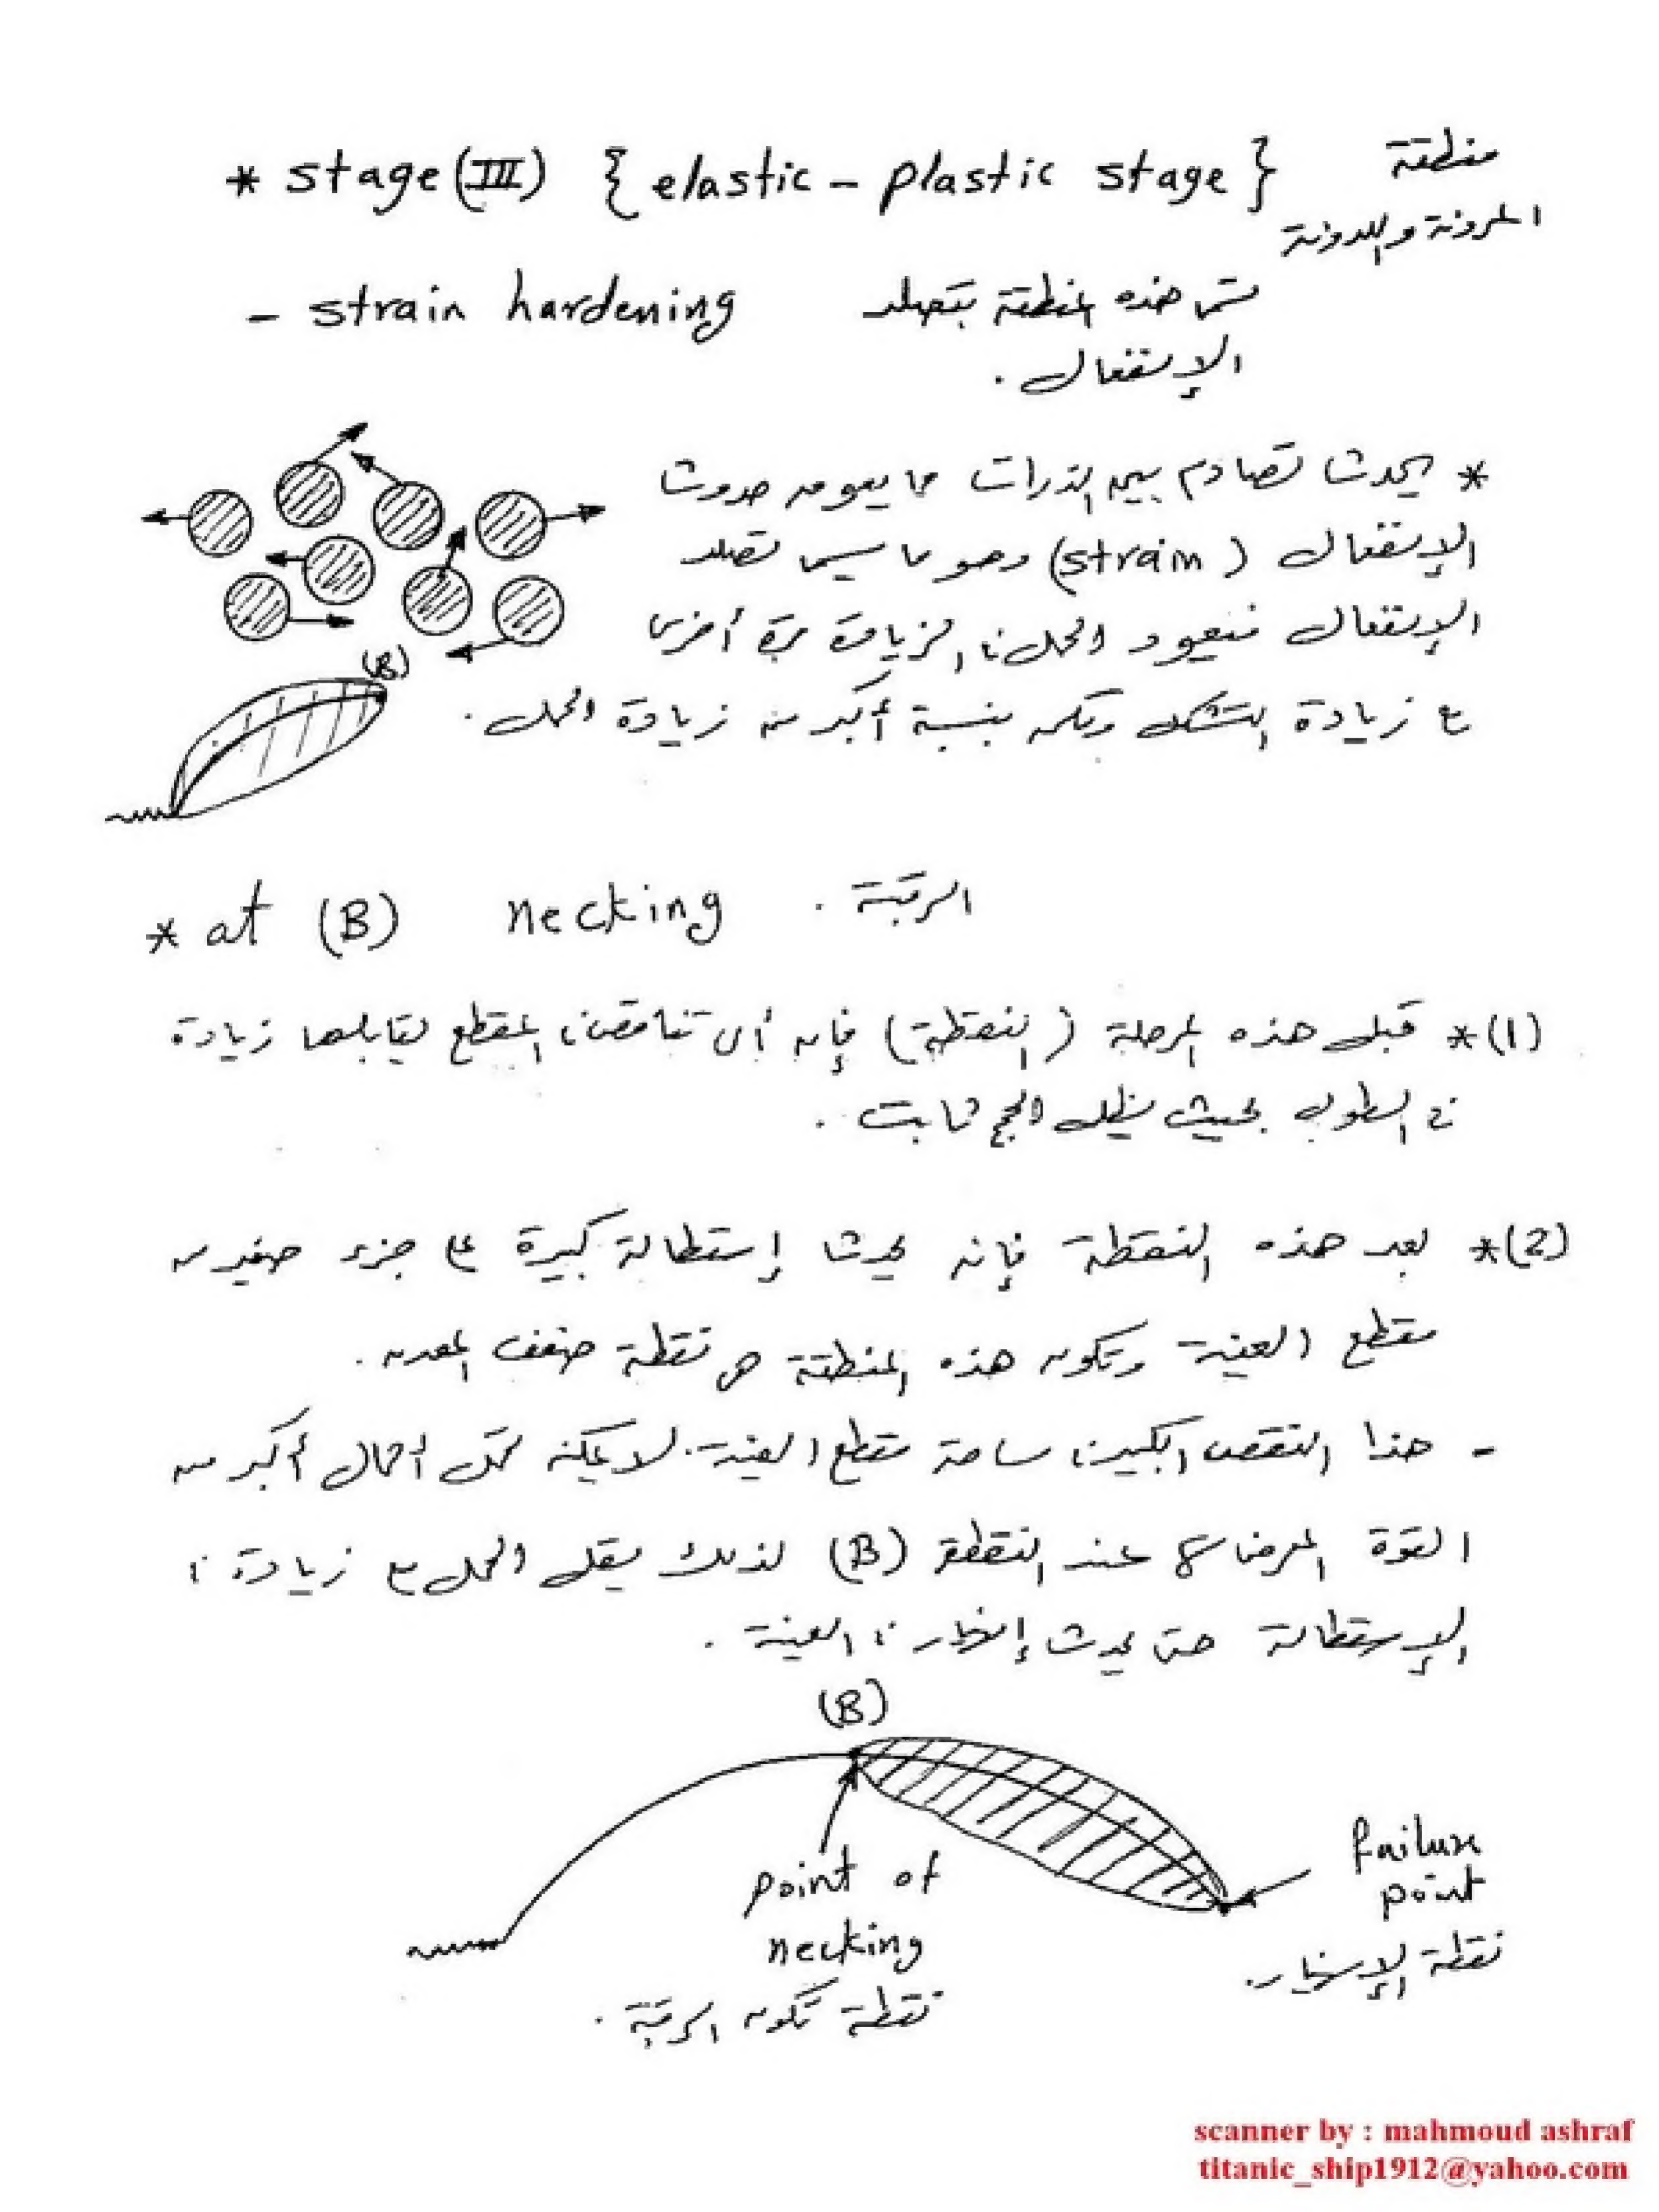 * stage (III) { elastic - plastic stage } منطقة
المرونة واللدونة
- strain hardening تسمى هذه المنطقة بتصلد
الإنفعال .
* يحدث تصادم بين الذرات مما يعوق حدوث
الإنفعال (strain) وهو ما يسمى تصلد
الإنفعال فيعود الحمل فى الزيادة مرة أخرى
مع زيادة التشكل ولكن بنسبة أكبر من زيادة الحمل .
(B)
* at (B) necking الرقبة .
(1) * قبل هذه المرحلة (النقطة) فإن أى تناقص فى المقطع يقابلها زيادة
فى الطول بحيث يظل الحجم ثابت .
(2) * بعد هذه النقطة فإنه يحدث إستطالة كبيرة فى جزء صغير من
مقطع العينة وتكون هذه المنطقة هى نقطة ضعف المعدن .
- هذا النقص الكبير فى ساحة مقطع العينة لا يمكنه تحمل أحمال أكبر من
القوة المعرضة عند النقطة (B) لذلك يقل الحمل مع زيادة فى
الإستطالة حتى يحدث إنهيار فى العينة .
(B)
point of
necking
نقطة تكون الرقبة .
failure
point
نقطة الإنهيار .
scanner by : mahmoud ashraf
titanic_ship1912@yahoo.com